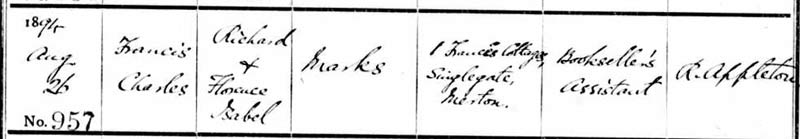 1895
Aug
26
No. 957
Francis
Charles
Richard
+
Florence
Isabel
Marks
1 Francis Cottages,
Singlegate,
Merton.
Bookseller's
Assistant
R. Appleton